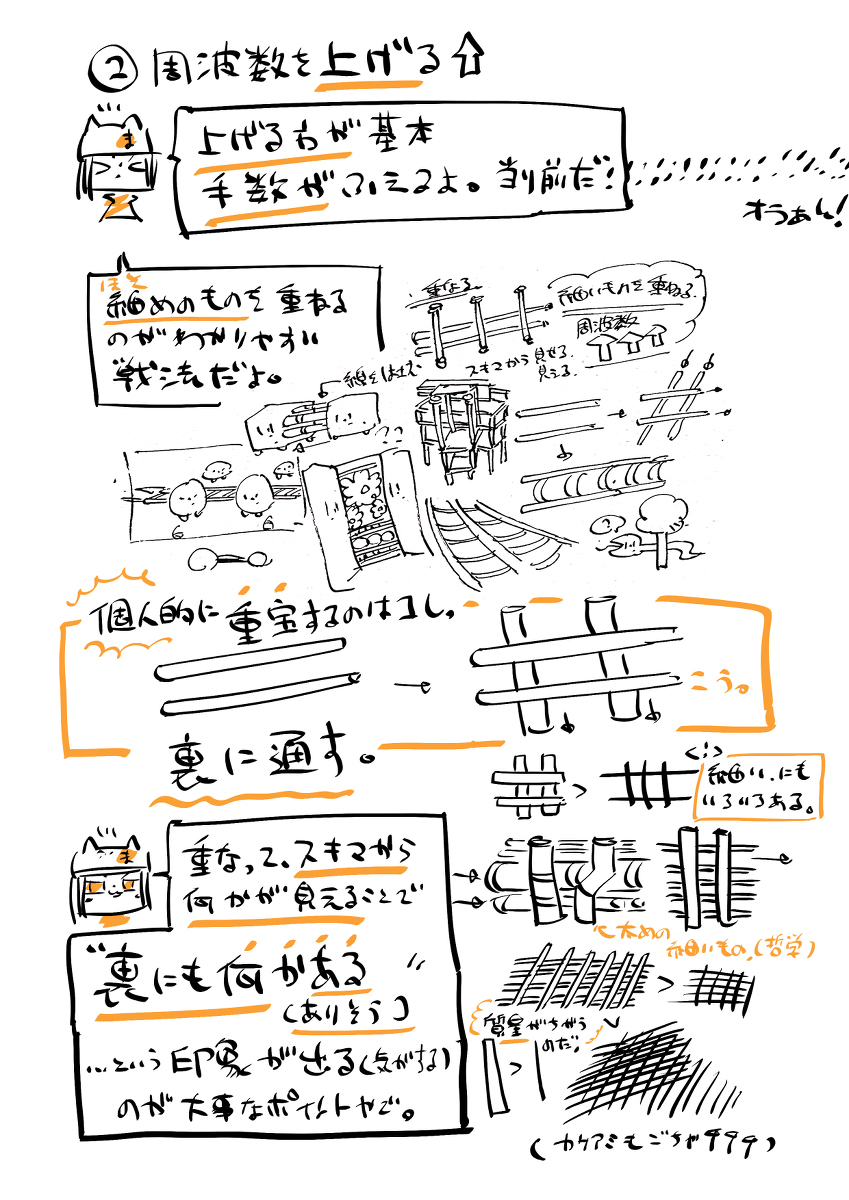 ② 周波数を上げる⇧
ま
上げる方が基本
手数がふえるよ。当り前だ!
オラぁん!
ほそ
細めのものを重ねる
のがわかりやすい
戦法だよ。
重ねる
細いものを重ねる。
周波数
スキマから見せる。
見える。
個人的に重宝するのはコレ。
→
こう。
裏に通す。
>
細い、にも
いろいろある。
ま
重なって、スキマから
何かが見えることで
"裏にも何かある"
(ありそう)
…という印象が出る(気がする)
のが大事なポイントやで。
太めの
細いもの、(哲学)
>
質量がちがう
のだ!
>
(カケアミもごちゃ